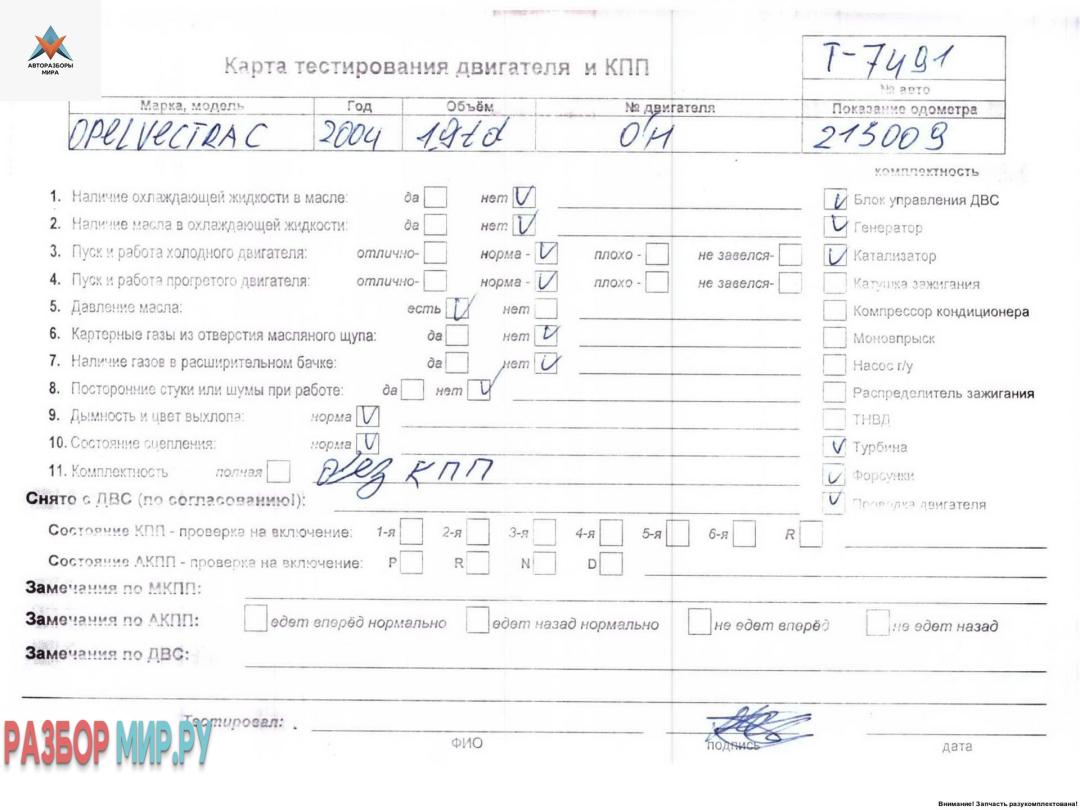 АВТОРАЗБОРЫ
МИРА
Карта тестирования двигателя и КПП
T-7491
№ авто
Марка, модель Год Объём № двигателя Показание одометра
OPEL VECTRA C 2004 1,9td 215009
комплектность
1. Наличие охлаждающей жидкости в масле: да нет V Блок управления ДВС
2. Наличие масла в охлаждающей жидкости: да нет V Генератор
3. Пуск и работа холодного двигателя: отлично- норма - V плохо - не завелся- V Катализатор
4. Пуск и работа прогретого двигателя: отлично- норма - V плохо - не завелся- Катушка зажигания
5. Давление масла: есть V нет Компрессор кондиционера
6. Картерные газы из отверстия масляного щупа: да нет V Моновпрыск
7. Наличие газов в расширительном бачке: да нет V Насос г/у
8. Посторонние стуки или шумы при работе: да нет V Распределитель зажигания
9. Дымность и цвет выхлопа: норма V ТНВД
10. Состояние сцепления: норма V V Турбина
11. Комплектность полная без КПП V Форсунки
Снято с ДВС (по согласованию!): V Проводка двигателя
Состояние КПП - проверка на включение: 1-я 2-я 3-я 4-я 5-я 6-я R
Состояние АКПП - проверка на включение: P R N D
Замечания по МКПП:
Замечания по АКПП: едет вперёд нормально едет назад нормально не едет вперёд не едет назад
Замечания по ДВС:
Тестировал:
ФИО подпись дата
РАЗБОР МИР.РУ
Внимание! Запчасть разукомплектована!